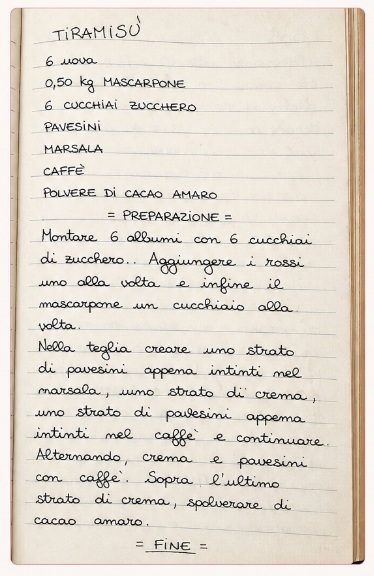 TIRAMISÙ
6 uova
0,50 kg MASCARPONE
6 CUCCHIAI ZUCCHERO
PAVESINI
MARSALA
CAFFÈ
POLVERE DI CACAO AMARO
= PREPARAZIONE =
Montare 6 albumi con 6 cucchiai
di zucchero.. Aggiungere i rossi
uno alla volta e infine il
mascarpone un cucchiaio alla
volta.
Nella teglia creare uno strato
di pavesini appena intinti nel
marsala, uno strato di crema,
uno strato di pavesini appena
intinti nel caffè e continuare.
Alternando, crema e pavesini
con caffè. Sopra l'ultimo
strato di crema, spolverare di
cacao amaro.
= FINE =